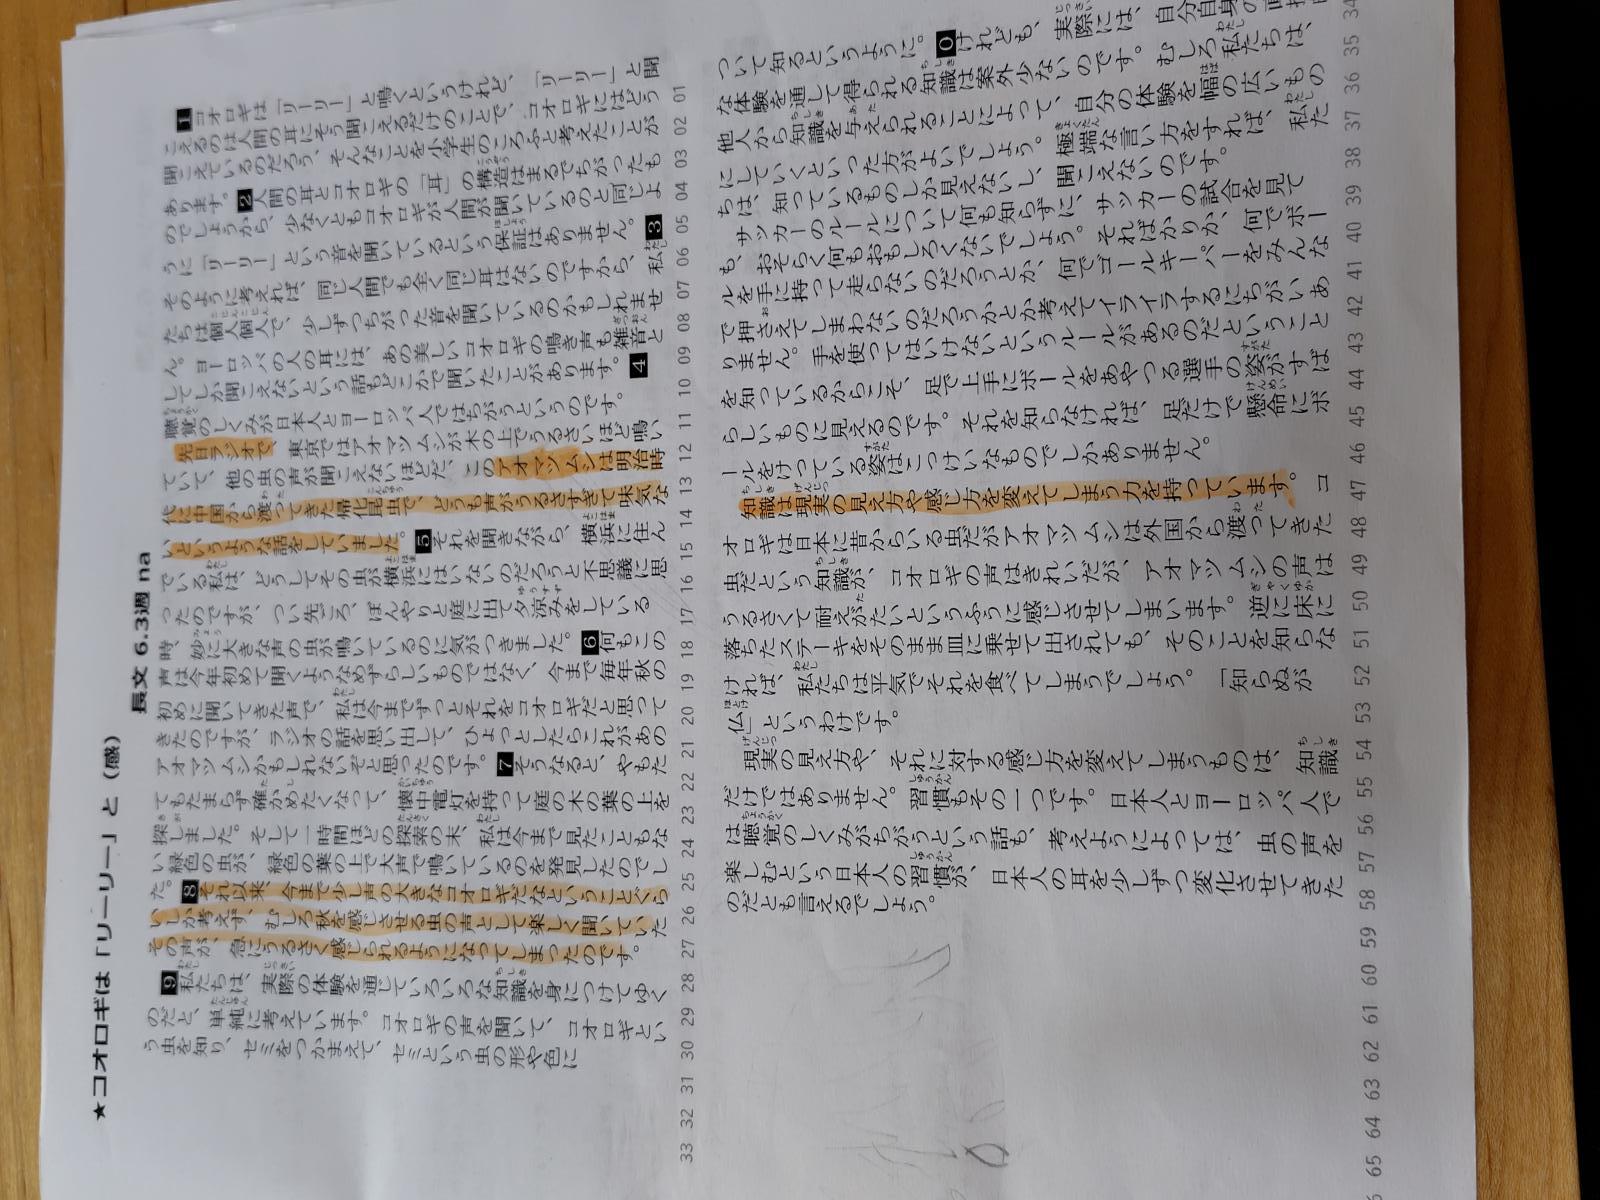 ★コオロギは「リーリー」と（感）
長文 6.3週 na
1コオロギは「リーリー」と鳴くというけれど、「リーリー」と聞
こえるのは人間の耳にそう聞こえるだけのことで、コオロギにはどう
聞こえているのだろう、そんなことを小学生のころふと考えたことが
あります。2人間の耳とコオロギの「耳」の構造はまるでちがったも
のでしょうから、少なくともコオロギが人間が聞いているのと同じよ
うに「リーリー」という音を聞いているという保証はありません。3
そのように考えれば、同じ人間でも全く同じ耳はないのですから、私
たちは個人個人で、少しずつちがった音を聞いているのかもしれませ
ん。ヨーロッパの人の耳には、あの美しいコオロギの鳴き声も雑音と
してしか聞こえないという話もどこかで聞いたことがあります。4
聴覚のしくみが日本人とヨーロッパ人ではちがうというのです。
先日ラジオで、東京ではアオマツムシが木の上でうるさいほど鳴い
ていて、他の虫の声が聞こえないほどだ、このアオマツムシは明治時
代に中国から渡ってきた帰化昆虫で、どうも声がうるさすぎて味気な
いというような話をしていました。5それを聞きながら、横浜に住ん
でいる私は、どうしてその虫が横浜にはいないのだろうと不思議に思
ったのですが、つい先ごろ、ぼんやりと庭に出て夕涼みをしている
時、妙に大きな声の虫が鳴いているのに気がつきました。6何もこの
声は今年初めて聞くようなめずらしいものではなく、今まで毎年秋の
初めに聞いてきた声で、私は今までずっとそれをコオロギだと思って
きたのですが、ラジオの話を思い出して、ひょっとしたらこれがあの
アオマツムシかもしれないぞと思ったのです。7そうなると、やもた
てもたまらず確かめたくなって、懐中電灯を持って庭の木の葉の上を
探しました。そして一時間ほどの探索の末、私は今まで見たこともな
い緑色の虫が、緑色の葉の上で大声で鳴いているのを発見したのでし
た。8それ以来、今まで少し声の大きなコオロギだなということぐら
いしか考えず、むしろ秋を感じさせる虫の声として楽しく聞いていた
その声が、急にうるさく感じられるようになってしまったのです。
9私たちは、実際の体験を通していろいろな知識を身につけてゆく
のだと、単純に考えています。コオロギの声を聞いて、コオロギとい
う虫を知り、セミをつかまえて、セミという虫の形や色に
01 02 03 04 05 06 07 08 09 10 11 12 13 14 15 16 17 18 19 20 21 22 23 24 25 26 27 28 29 30 31 32 33
ついて知るというように。0けれども、実際には、自分自身の
な体験を通して得られる知識は案外少ないのです。むしろ私たちは、
他人から知識を与えられることによって、自分の体験を幅の広いもの
にしていくといった方がよいでしょう。極端な言い方をすれば、私た
ちは、知っているものしか見えないし、聞こえないのです。
サッカーのルールについて何も知らずに、サッカーの試合を見て
も、おそらく何もおもしろくないでしょう。そればかりか、何でボー
ルを手に持って走らないのだろうとか、何でゴールキーパーをみんな
で押さえてしまわないのだろうかとか考えてイライラするにちがいあ
りません。手を使ってはいけないというルールがあるのだということ
を知っているからこそ、足で上手にボールをあやつる選手の姿がすば
らしいものに見えるのです。それを知らなければ、足だけで懸命にボ
ールをけっている姿はこっけいなものでしかありません。
知識は現実の見え方や感じ方を変えてしまう力を持っています。コ
オロギは日本に昔からいる虫だがアオマツムシは外国から渡ってきた
虫だという知識が、コオロギの声はきれいだが、アオマツムシの声は
うるさくて耐えがたいというふうに感じさせてしまいます。逆に床に
落ちたステーキをそのまま皿に乗せて出されても、そのことを知らな
ければ、私たちは平気でそれを食べてしまうでしょう。「知らぬが
仏」というわけです。
現実の見え方や、それに対する感じ方を変えてしまうものは、知識
だけではありません。習慣もその一つです。日本人とヨーロッパ人で
は聴覚のしくみがちがうという話も、考えようによっては、虫の声を
楽しむという日本人の習慣が、日本人の耳を少しずつ変化させてきた
のだとも言えるでしょう。
34 35 36 37 38 39 40 41 42 43 44 45 46 47 48 49 50 51 52 53 54 55 56 57 58 59 60 61 62 63 64 65